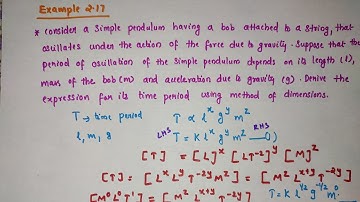 Example 2.17
* consider a simple pendulum having a bob attached to a string, that
oscillates under the action of the force due to gravity. Suppose that the
period of oscillation of the simple pendulum depends on its length (l),
mass of the bob (m) and acceleration due to gravity (g). Derive the
expression for its time period using method of dimensions.
T → time period T ∝ l^x g^y m^z
l, m, g LHS T = K l^x g^y m^z RHS —①
[T] = [L]^x [LT^-2]^y [M]^z
[T] = [L^x L^y T^-2y M^z] = [M^z L^x+y T^-2y]
[M^0 L^0 T^1] = [M^z L^x+y T^-2y] T = K l^1/2 g^-1/2 m^0